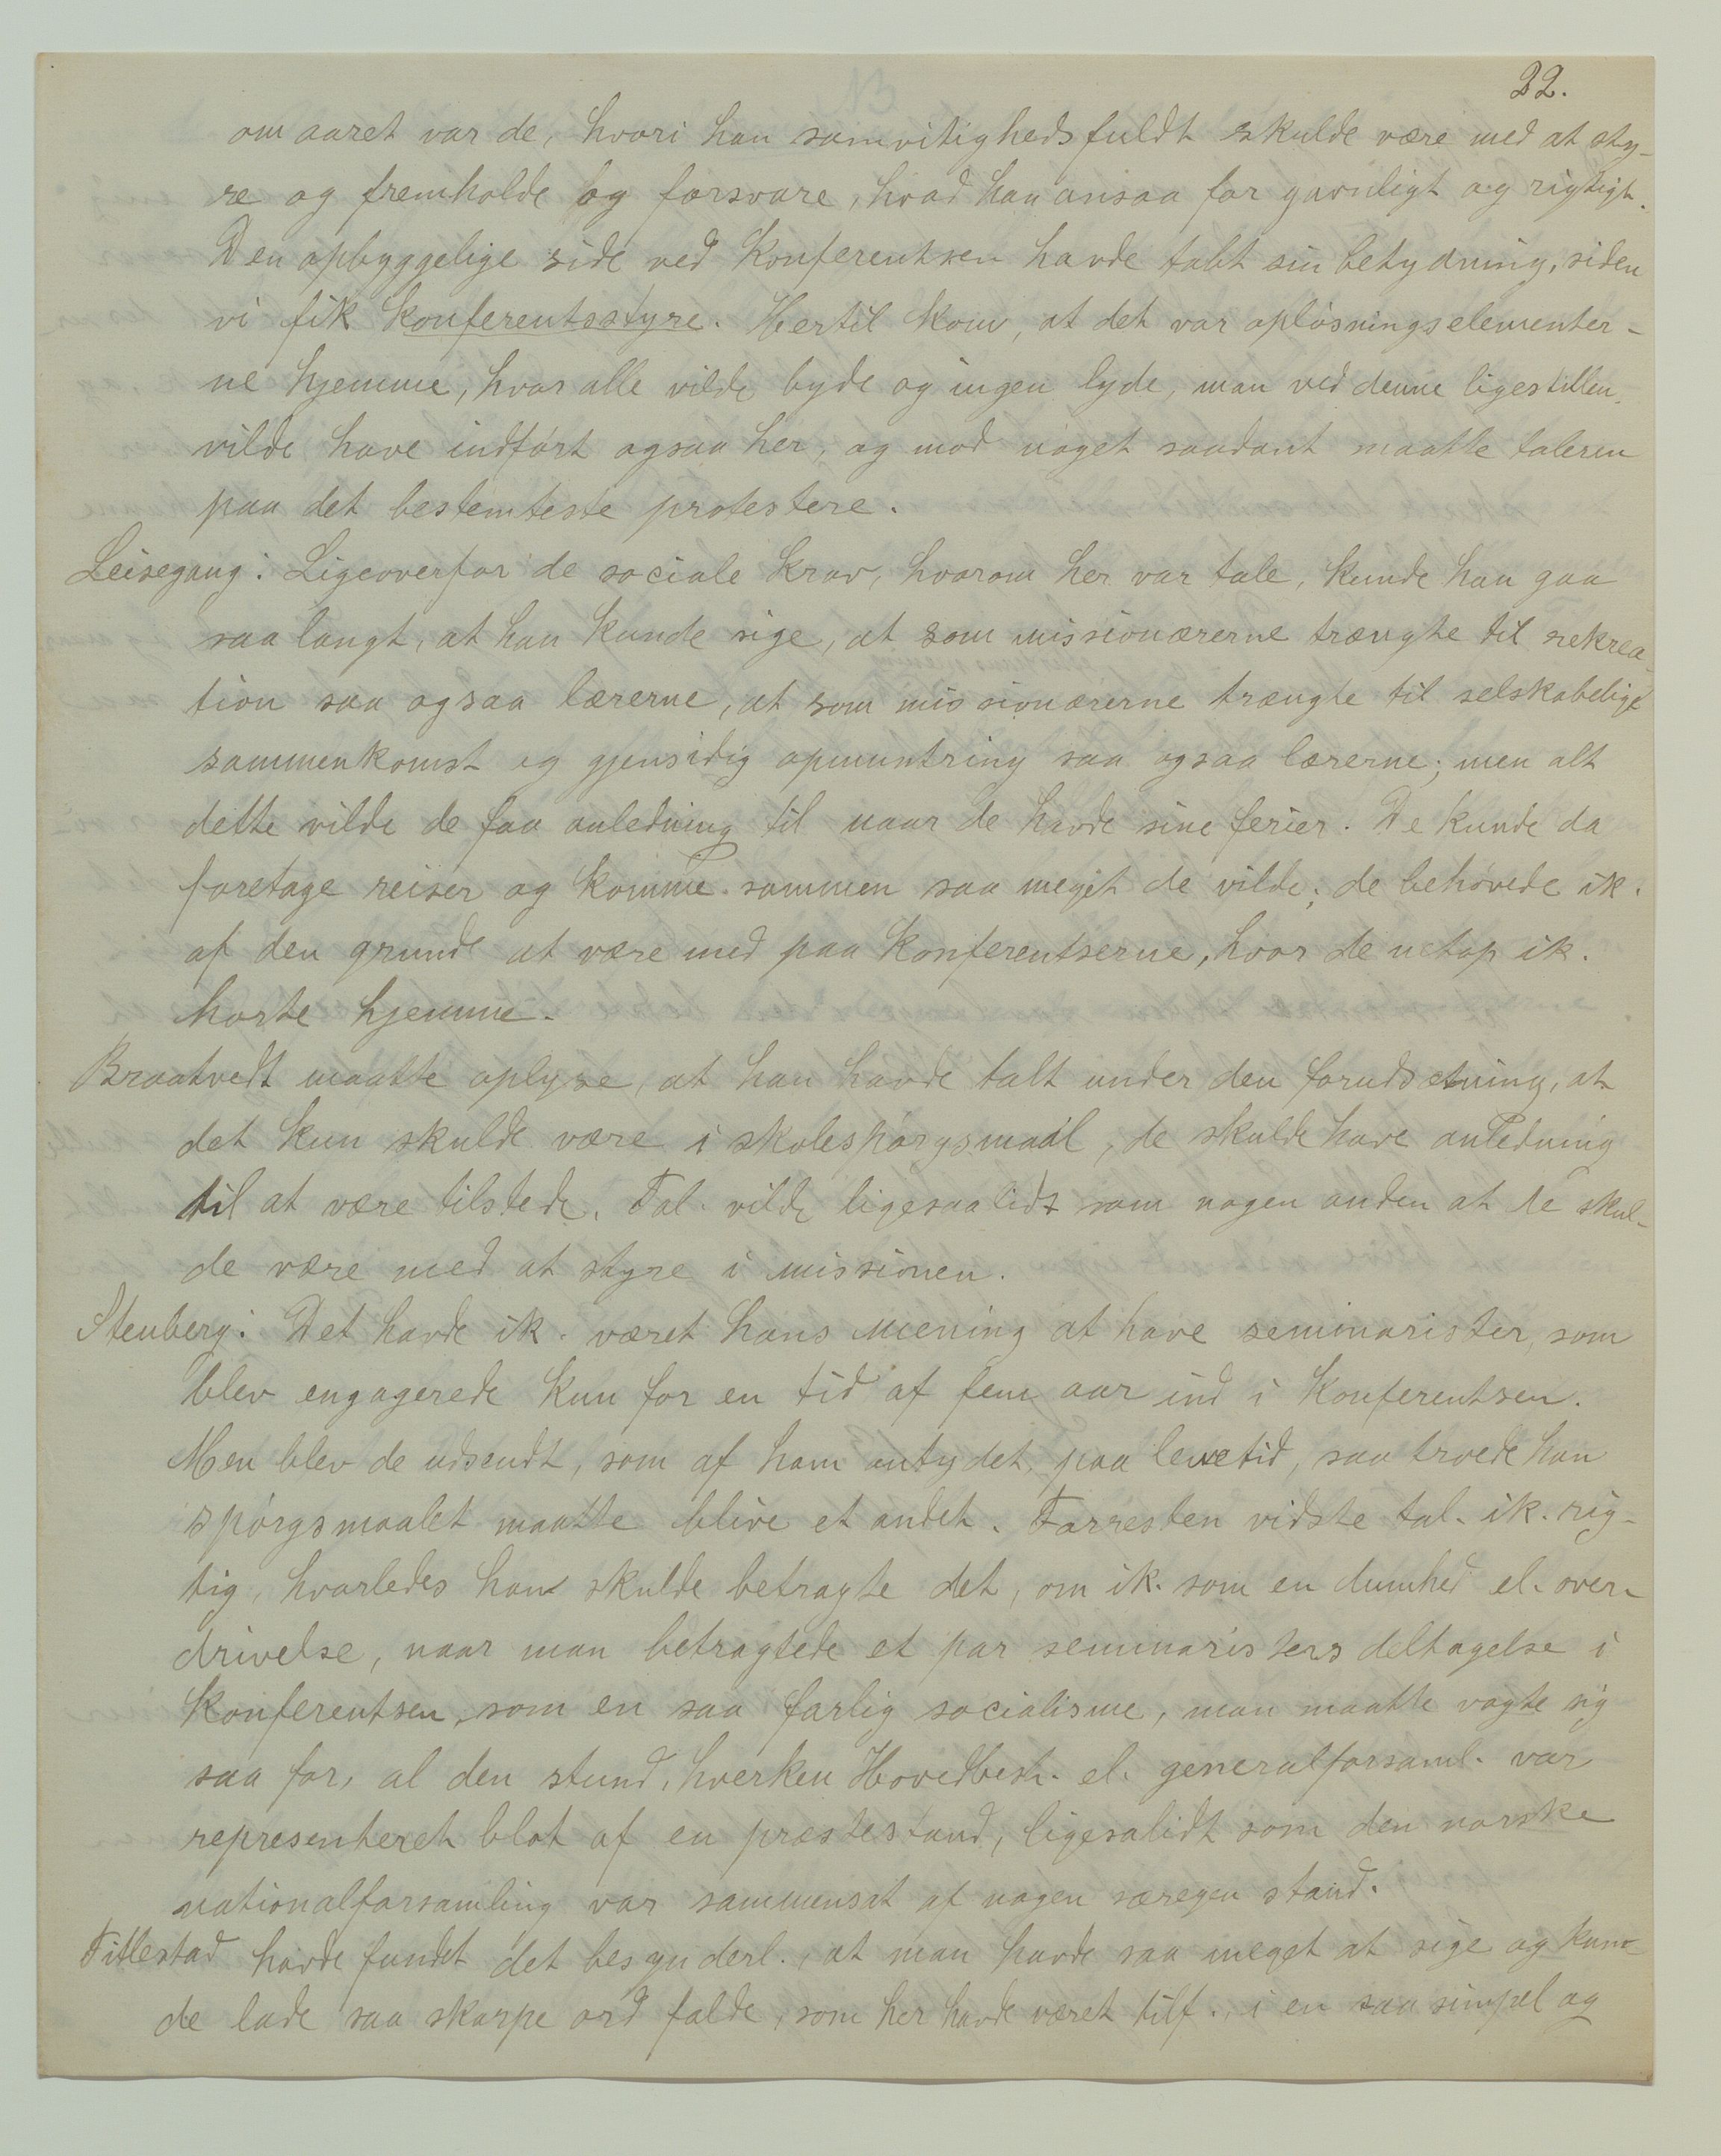 22.
om aaret var de, hvori han samvitighedsfuldt skulde være med at sty-
re og fremholde og forsvare, hvad han ansaa for gavnligt og rigtigt.
Den opbyggelige side ved Konferentsen havde tabt sin betydning, siden
vi fik Konferentsstyre. Hertil kom, at det var opløsningselementer-
ne hjemme, hvor alle vilde byde og ingen lyde, man ved denne ligestillen.
vilde have indført ogsaa her, og mod noget saadant maatte taleren
paa det bestemteste protestere.
Leisegang: Ligeoverfor de sociale krav, hvorom her var tale, kunde han gaa
saa langt, at han kunde sige, at som missionærerne trængte til rekrea-
tion saa ogsaa lærerne, at som missionærerne trængte til selskabelige
sammenkomst og gjensidig opmuntring saa ogsaa lærerne; men alt
dette vilde de faa anledning til naar de havde sine ferier. De kunde da
foretage reiser og komme sammen saa meget de vilde; de behøvede ik.
af den grund at være med paa Konferentserne, hvor de netop ik.
hørte hjemme.
Braatvedt maatte oplyse, at han havde talt under den forudsetning, at
det kun skulde være i skolespørgsmaal, de skulde have anledning
til at være tilstede. Tal. vilde ligesaalidt som nogen anden at de skul-
de være med at styre i missionen.
Stenberg: Det havde ik. været hans mening at have seminarister, som
blev engagerede kun for en tid af fem aar ind i Konferentsen.
Men blev de udsendt, som af ham antydet, paa levetid, saa troede han
spørgsmaalet maatte blive et andet. Forresten vidste tal. ik. rig-
tig, hvorledes han skulde betragte det, om ik. som en dumhed el. over-
drivelse, naar man betragtede et par seminaristers deltagelse i
Konferentsen, som en saa farlig socialisme, man maatte vogte sig
saa for, al den stund, hverken Hovedbest. el. generalforsaml. var
representeret blot af en præstestand, ligesalidt som den norske
nationalforsamling var sammensat af nogen særegen stand.
Titlestad havde fundet det besynderl., at man havde saa meget at sige og kun-
de lade saa skarpe ord falde, som her havde været tilf., i en saa simpel og